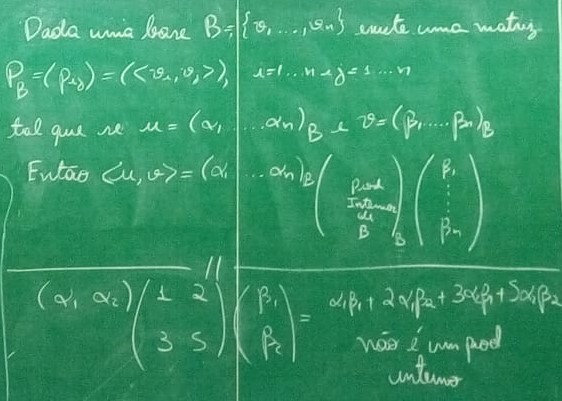 Dada uma base B={v₁,...,vn} existe uma matriz
P_B=(pij)=(<vi,vj>), i=1...n e j=1...n
tal que se u=(α₁.....αn)_B e v=(β₁.....βn)_B
Então <u,v>=(α₁....αn)_B (Prod Internos de B)_B (β₁ ⋮ βn)
(α₁ α₂) (1 2 3 5) (β₁ β₂) = α₁β₁+2α₁β₂+3α₂β₁+5α₂β₂
não é um prod
interno